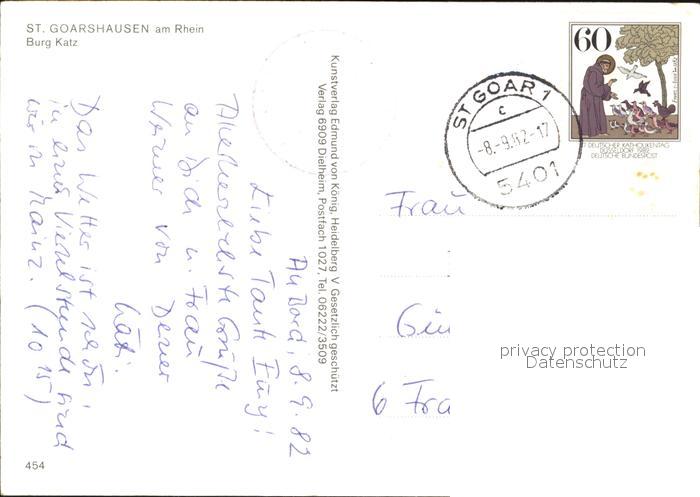 ST. GOARSHAUSEN am Rhein
Burg Katz
An Bord, 8.9.82
Liebe Tante
Allerherzlichste Grüße
an Dich u. Frau
Werner von Deiner
Käti.
Das Wetter ist schön,
in einer Viertelstunde sind
wir in Mainz. (10 15)
454
Kunstverlag Edmund von König, Heidelberg V Gesetzlich geschützt
Verlag 6909 Dielheim, Postfach 1027, Tel. 06222/3509
ST GOAR 1
c
-8.-9.82-17
5401
60
87. DEUTSCHER KATHOLIKENTAG
DÜSSELDORF 1982
DEUTSCHE BUNDESPOST
Frau
6 Fra
privacy protection
Datenschutz